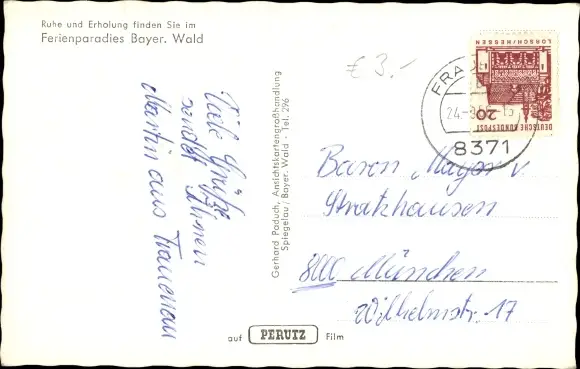 Ruhe und Erholung finden Sie im
Ferienparadies Bayer. Wald
Viele Grüße
sendet Ihnen
Martin aus Frauenau
Gerhard Paduch, Ansichtskartengroßhandlung
Spiegelau/Bayer. Wald - Tel. 296
€ 3.-
FRA
24.
8371
LORSCH/HESSEN
20
DEUTSCHE BUNDESPOST
Baron Mayer v.
Stratzhausen
8000 München
Wilhelmstr. 17
auf PERUTZ Film